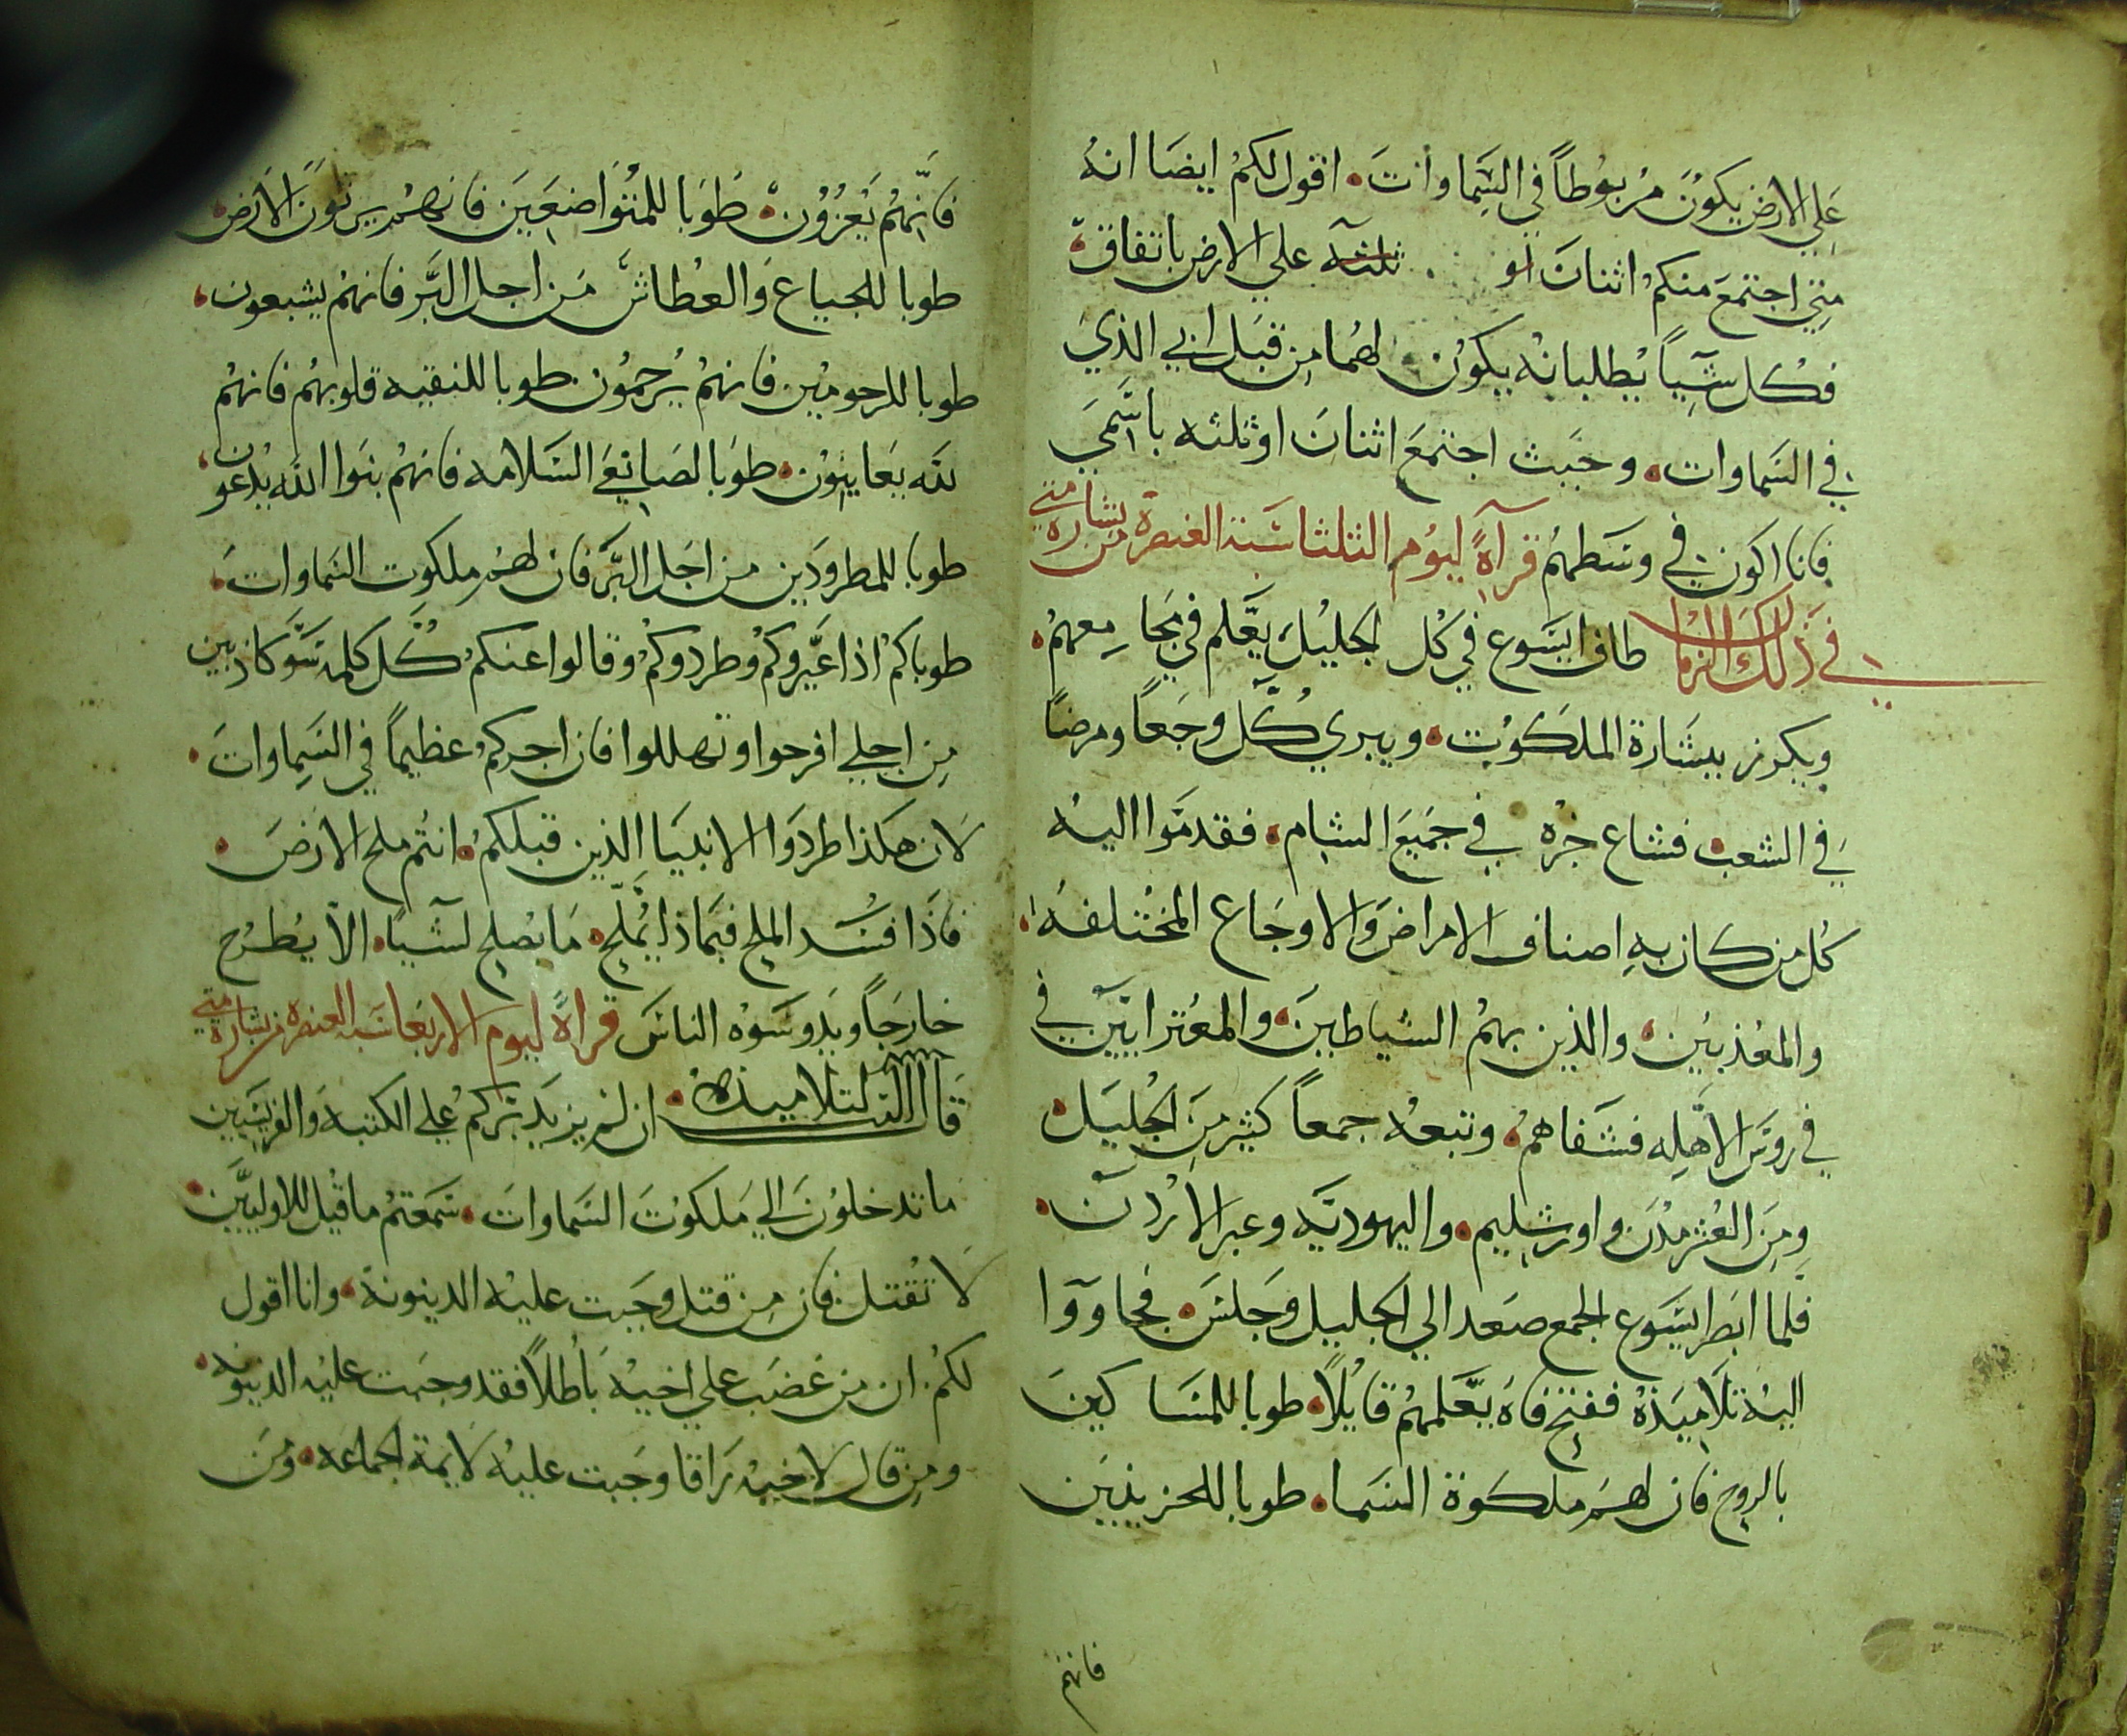 عَلي الارض يكوُنَ مرُبوُطاً في السَِماواتَ. اقول لكمُ ايضَا انهُ
متِي اجتمَعَ منكمُ اثنانَ او ثلثهَ علي الارض باتفاق
فكُل شَيِآً يُطلبانهُ يكوُن لهُما مِن قبَل ابي الذيَ
في السَماوات. وحَيث اجتمعَ اثنانَ اوثلثه باسَّمَي
فانا اكون في وسَطهمُ قرآهً ليوُم الثلثا سَنة العنصرة من بشارة متي
في ذلك الزمان طاف ايسَوع في كُل الجليُل يَعَّلم في مجَامِعهمُ.
ويكرز ببشَارة الملكوُت. ويبري كُّل وجَعاً ومرضاً
في الشعب فشاع خبره في جَميَع الشام. فقدمَوا اليهُ
كُل من كان بهِ اصناف الامراضَ وَالاوجَاع المختُلفهُ.
والمعُذبيُن. والذين بهمُ الشياطينَ. والمعُترايَيَن في
في روسَ الاهَّلِه فشَفاهمُ. وتبعهُ جمعاً كثير منَ الجُليَل
ومِنَ العُشر مدُن واورشليم. واليهودَيَّه وعبر الاُردَن.
فلما ابَصَر ايسَوع الجمع صعَد الي الجليل وَجَلسَ. فجاووَا
اليهُ تلَاميَذهُ ففتح فاهَ يَعَّلمهُم قايُلاً. طوبا للمسَاكينَ
بالروح فان لهمَ ملكوة السَما. طوبا للحزينيَن
فانهم
فانَّهمُ يَعُزوُن. طَوَبا للمتُوَاضعَيَن فانهمُ يرثونَ الارَض
طوبا للجياع وَالعُطاشَ مَن اجل البَّر فانهمُ يشبعون.
طوبا للرحوميُن فانهمُ يُرحمُون. طوبا للنقيه قلوبهمُ فانهمُ
لله يَعَاينِوُن. طوَبا لصَانِعيَ السَلامه فانهمُ بنَوا الله يُدعَون.
طوبا للمطروَدين من اجَل البَّر فان لهمُ ملكوت السَماواتَ.
طوباكمُ اذا عَيَّروكمُ وطردوكمُ وقالوا عنكمُ كُّل كلمة سَوَّ كاذبين
مِن اجلي افرحوا وتهللوا فان اجركمُ عظيماً في السَِماواتَ.
لَان هكذا طردَوا الانبيَا الذين قبلكمُ. انتُم ملح الارضَ.
فاذَا فسَُد الملح فبمَاذا يُّملح. مَا يصُلح لشَياً. الاَ يُطرَح
خارجَاً ويَدوسَوُه الناسَ قراةً ليوم الاربعَا سَنه العنصره من بشارة متي
قَال الرب لتلاميذهُ. ان لمُ يزيَد بَركمُ علي الكتبهَ وَالفريسَيين
ما تدخلوُنَ الي مَلكوُتَ السَماواتَ. سَمعَتمُ ما قيُل للاوليَّين.
لَا تقُتل فان مِن قتل وجَبت عليهُ الدينونة. وانا اقول
لكمُ. ان من غضَب علي اخيهُ بَاطُلاً فقد وجبَت عليهُ الدينونه.
ومِن قال لاخيهُ رَاقا وجَبت عليهُ لَايمة الجماعَه. ومَن